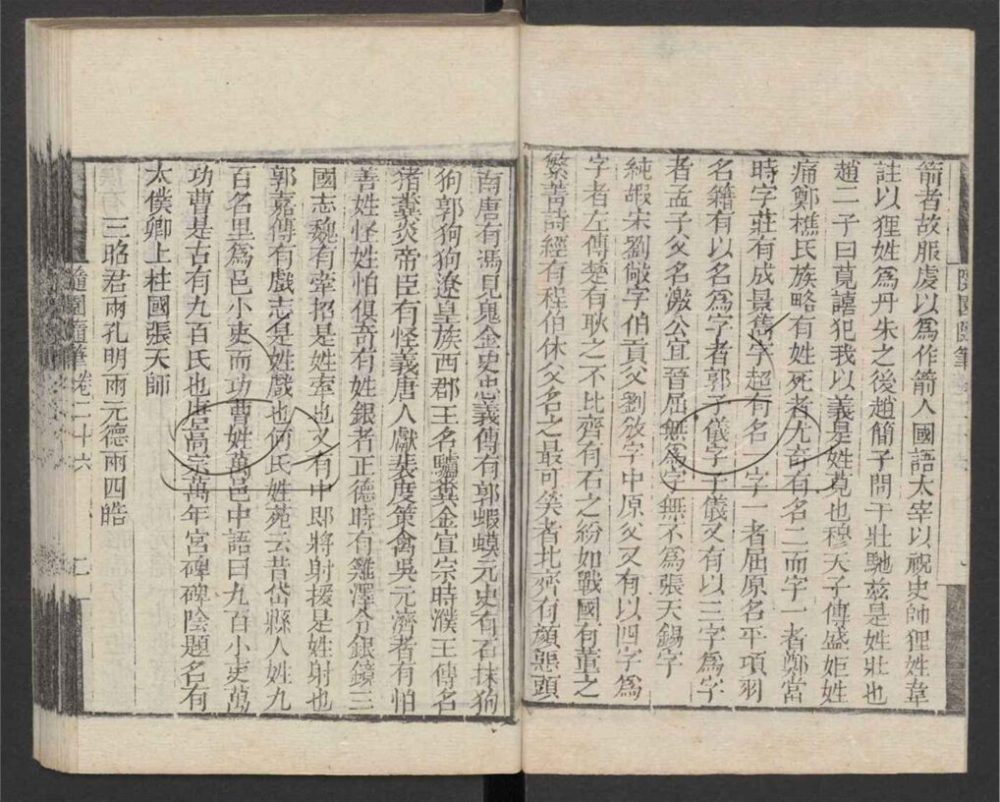 箭者故服虔以爲作箭人國語太宰以祝史帥狸姓韋
註以狸姓爲丹朱之後趙簡子問于壯馳兹是姓壯也
趙二子曰莧譆犯我以義是姓莧也穆天子傳盛姬姓
痛鄭樵氏族略有姓死者尤奇有名二而字一者鄭當
時字莊有成景雋字超有名一字一者屈原名平項羽
名籍有以名爲字者郭子儀字子儀又有以三字爲字
者孟子父名激公宜晉屈無爲字無不爲張天錫字
純嘏宋劉敞字伯貢父劉攽字中原父又有以四字爲
字者左傳楚有耿之不比齊有石之紛如戰國有董之
繁菁詩經有程伯休父名之最可笑者北齊有顔惡頭
南唐有馮見鬼金史忠義傳有郭蝦蟆元史有石抹狗
狗郭狗狗遼皇族西郡王名驢糞金宣宗時濮王傳名
猪糞炎帝臣有怪義唐人獻裴度策禽吳元濟者有怕
善姓怪姓怕俱奇有姓銀者正德時有難澤令銀鏡三
國志魏有牽招是姓牽也又有中郎將射援是姓射也
郭嘉傳有戲志是姓戲也何氏姓苑云昔岱縣人姓九
百名里爲邑小吏而功曹姓萬邑中語曰九百小吏萬
功曹是古有九百氏也唐高宗萬年宮碑碑陰題名有
太僕卿上柱國張天師
三昭君兩孔明兩元德兩四皓
隨園隨筆 卷二十六 二